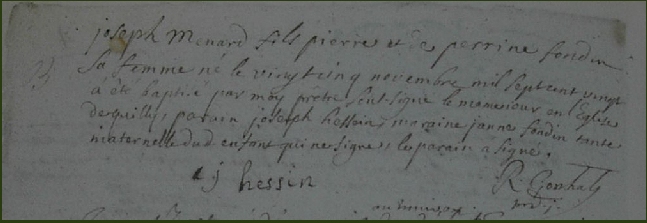 B
joseph Menard fils pierre et de perrine fondin
Sa femme né le vingt cinq novembre mil sept cent vingt
a ète baptisé par moy prêtre sousigné le mesme jour en l'Eglise
parain joseph hessin, maraine janne fondin tante
maternelle dud enfant qui ne signe, le parain a signé.
j hessin
R. Gonhaly